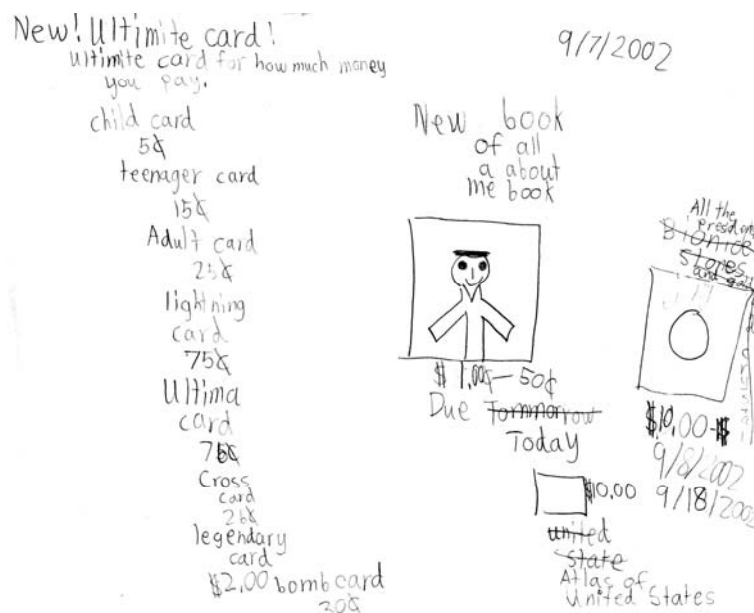 New! Ultimite card!
Ultimite card for how much money
you pay.
child card
5¢
teenager card
15¢
Adult card
25¢
lightning
card
75¢
Ultima
card
Cross
card
26¢
legendary
card
$2,00 bomb card
30¢
9/7/2002
New book
of all
a about
me book
$ 1,00¢ — 50¢
Due Tommorrow
Today
$10,00
united
state
Atlas of
United States
All the
Stones
and gold
$10,00-$
9/8/2002
9/18/2002